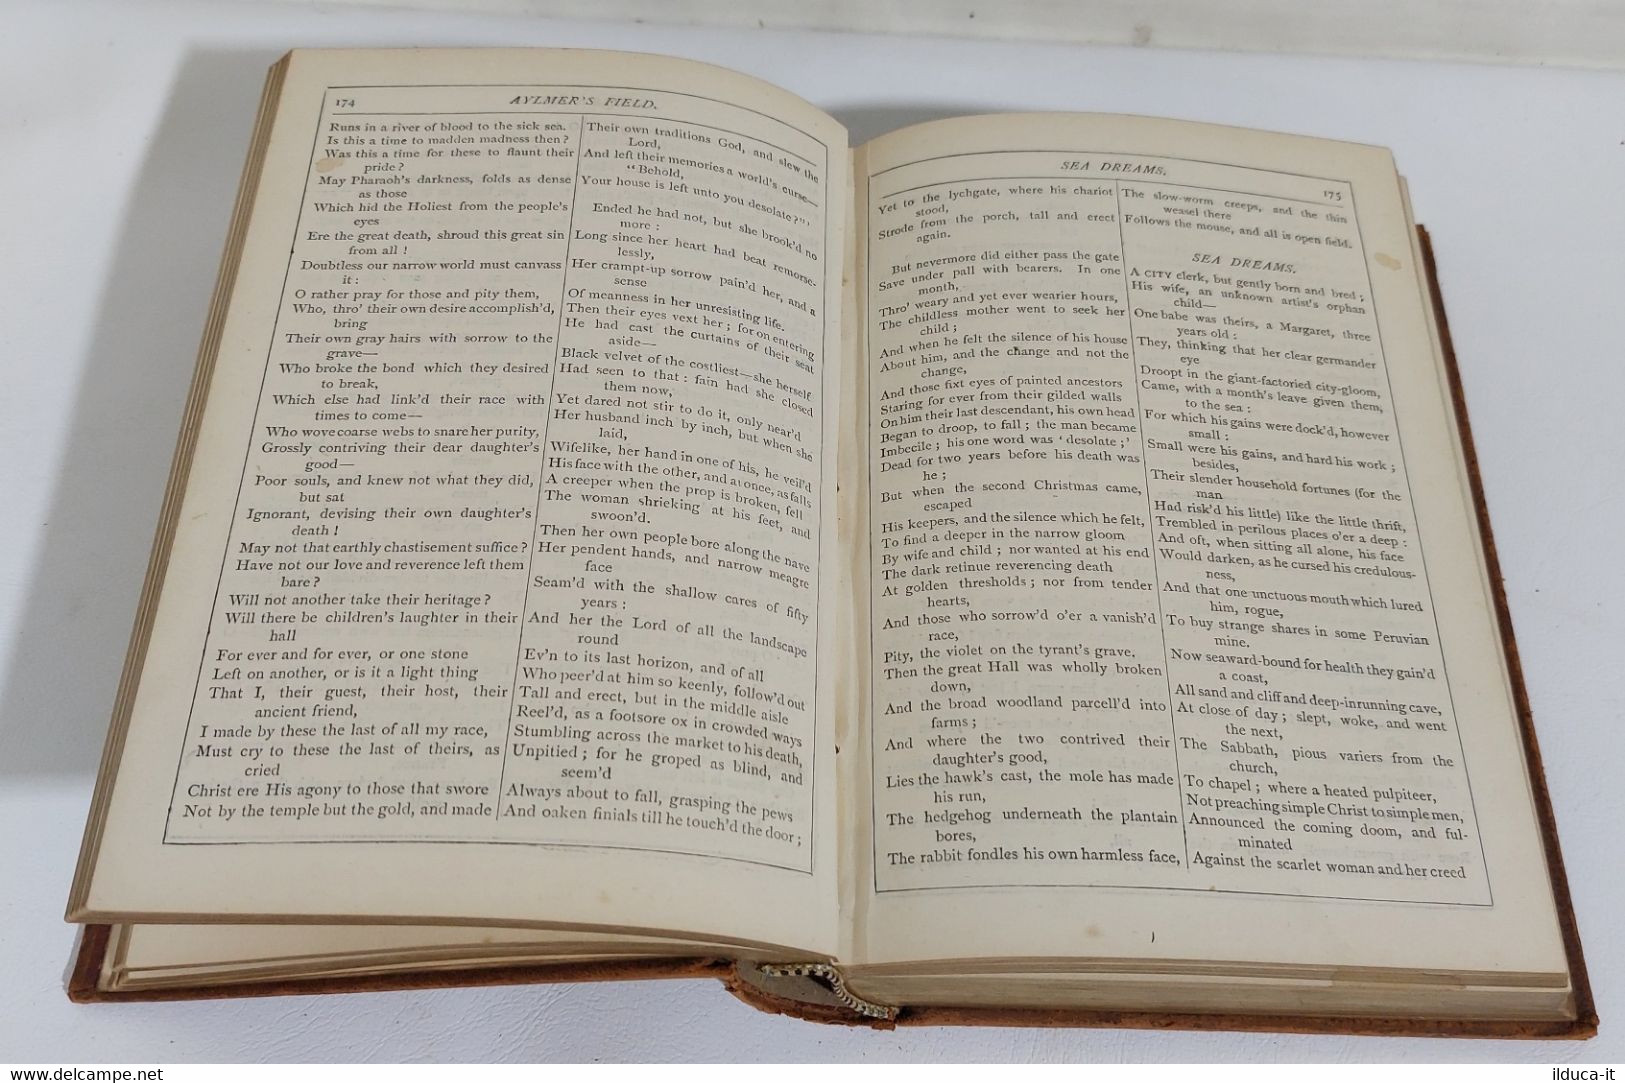 174
AYLMER'S FIELD.
Runs in a river of blood to the sick sea.
Is this a time to madden madness then?
Was this a time for these to flaunt their
pride?
May Pharaoh's darkness, folds as dense
as those
Which hid the Holiest from the people's
eyes
Ere the great death, shroud this great sin
from all!
Doubtless our narrow world must canvass
it:
O rather pray for those and pity them,
Who, thro' their own desire accomplish'd,
bring
Their own gray hairs with sorrow to the
grave—
Who broke the bond which they desired
to break,
Which else had link'd their race with
times to come—
Who wove coarse webs to snare her purity,
Grossly contriving their dear daughter's
good—
Poor souls, and knew not what they did,
but sat
Ignorant, devising their own daughter's
death!
May not that earthly chastisement suffice?
Have not our love and reverence left them
bare?
Will not another take their heritage?
Will there be children's laughter in their
hall
For ever and for ever, or one stone
Left on another, or is it a light thing
That I, their guest, their host, their
ancient friend,
I made by these the last of all my race,
Must cry to these the last of theirs, as
cried
Christ ere His agony to those that swore
Not by the temple but the gold, and made
Their own traditions God, and slew the
Lord,
And left their memories a world's curse—
“Behold,
Your house is left unto you desolate?”'
Ended he had not, but she brook'd no
more:
Long since her heart had beat remorse-
lessly,
Her crampt-up sorrow pain'd her, and a
sense
Of meanness in her unresisting life.
Then their eyes vext her; for on entering
He had cast the curtains of their seat
aside—
Black velvet of the costliest—she herself
Had seen to that: fain had she closed
them now,
Yet dared not stir to do it, only near'd
Her husband inch by inch, but when she
laid,
Wifelike, her hand in one of his, he veil'd
His face with the other, and at once, as falls
A creeper when the prop is broken, fell
The woman shrieking at his feet, and
swoon'd.
Then her own people bore along the nave
Her pendent hands, and narrow meagre
face
Seam'd with the shallow cares of fifty
years:
And her the Lord of all the landscape
round
Ev'n to its last horizon, and of all
Who peer'd at him so keenly, follow'd out
Tall and erect, but in the middle aisle
Reel'd, as a footsore ox in crowded ways
Stumbling across the market to his death,
Unpitied; for he groped as blind, and
seem'd
Always about to fall, grasping the pews
And oaken finials till he touch'd the door;
SEA DREAMS.
175
Yet to the lychgate, where his chariot
stood,
Strode from the porch, tall and erect
again.
But nevermore did either pass the gate
Save under pall with bearers. In one
month,
Thro' weary and yet ever wearier hours,
The childless mother went to seek her
child;
And when he felt the silence of his house
About him, and the change and not the
change,
And those fixt eyes of painted ancestors
Staring for ever from their gilded walls
On him their last descendant, his own head
Began to droop, to fall; the man became
Imbecile; his one word was ‘desolate;’
Dead for two years before his death was
he;
But when the second Christmas came,
escaped
His keepers, and the silence which he felt,
To find a deeper in the narrow gloom
By wife and child; nor wanted at his end
The dark retinue reverencing death
At golden thresholds; nor from tender
hearts,
And those who sorrow'd o'er a vanish'd
race,
Pity, the violet on the tyrant's grave.
Then the great Hall was wholly broken
down,
And the broad woodland parcell'd into
farms;
And where the two contrived their
daughter's good,
Lies the hawk's cast, the mole has made
his run,
The hedgehog underneath the plantain
bores,
The rabbit fondles his own harmless face,
The slow-worm creeps, and the thin
weasel there
Follows the mouse, and all is open field.
SEA DREAMS.
A CITY clerk, but gently born and bred;
His wife, an unknown artist's orphan
child—
One babe was theirs, a Margaret, three
years old:
They, thinking that her clear germander
eye
Droopt in the giant-factoried city-gloom,
Came, with a month's leave given them,
to the sea:
For which his gains were dock'd, however
small:
Small were his gains, and hard his work;
besides,
Their slender household fortunes (for the
man
Had risk'd his little) like the little thrift,
Trembled in perilous places o'er a deep:
And oft, when sitting all alone, his face
Would darken, as he cursed his credulous-
ness,
And that one unctuous mouth which lured
him, rogue,
To buy strange shares in some Peruvian
mine.
Now seaward-bound for health they gain'd
a coast,
All sand and cliff and deep-inrunning cave,
At close of day; slept, woke, and went
the next,
The Sabbath, pious variers from the
church,
To chapel; where a heated pulpiteer,
Not preaching simple Christ to simple men,
Announced the coming doom, and ful-
minated
Against the scarlet woman and her creed
www.delcampe.net
ilduca-it